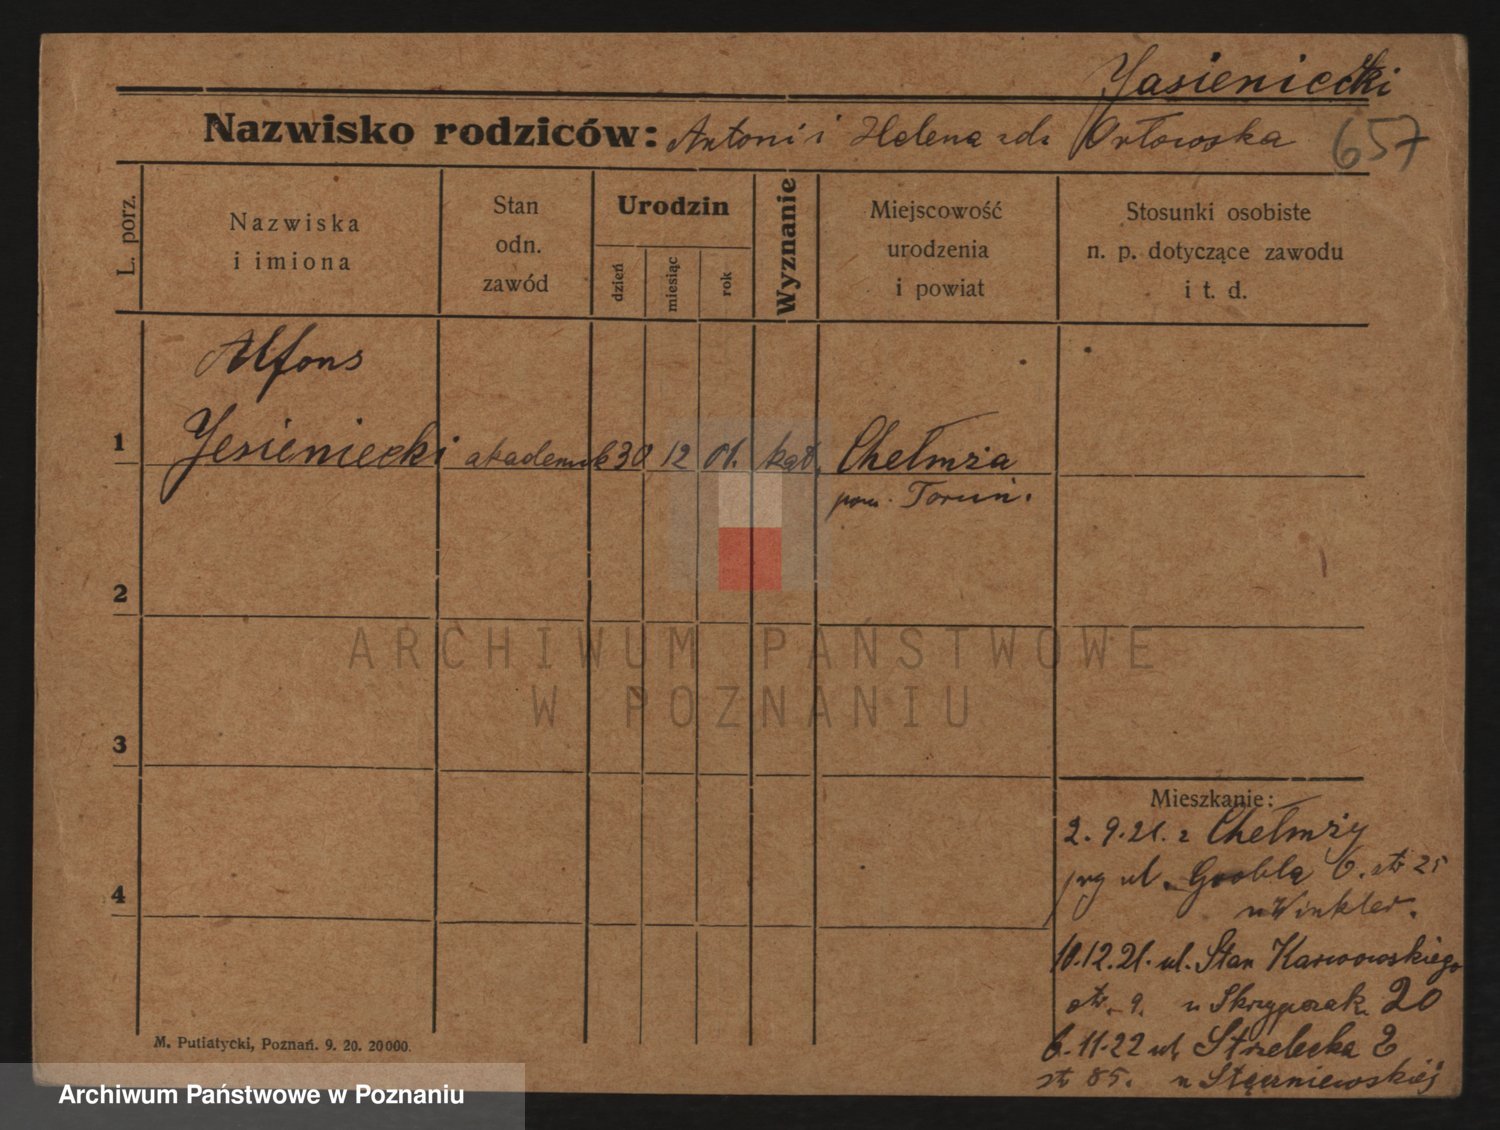 Jasieniecki
Nazwisko rodziców: Antoni i Helena zd. Orłowska 657
L. porz.
Nazwiska
i imiona
Stan
odn.
zawód
Urodzin
dzień
miesiąc
rok
Wyznanie
Miejscowość
urodzenia
i powiat
Stosunki osobiste
n. p. dotyczące zawodu
i t. d.
Alfons
1 Jesieniecki akademik 30 12 01. kat. Chełmża
pow. Toruń.
2
ARCHIWUM PAŃSTWOWE
W POZNANIU
3
4
Mieszkanie:
2. 9. 21. z Chełmży
ul. Grobla 6. str 25
u Winkler.
10.12.21. ul. Stan Karwowskiego
str. 9. u Skrzypczak 20
6.11.22 ul. Strzelecka 2
str 85. u Stęczniewskiej
M. Putiatycki, Poznań. 9. 20. 20000.
Archiwum Państwowe w Poznaniu